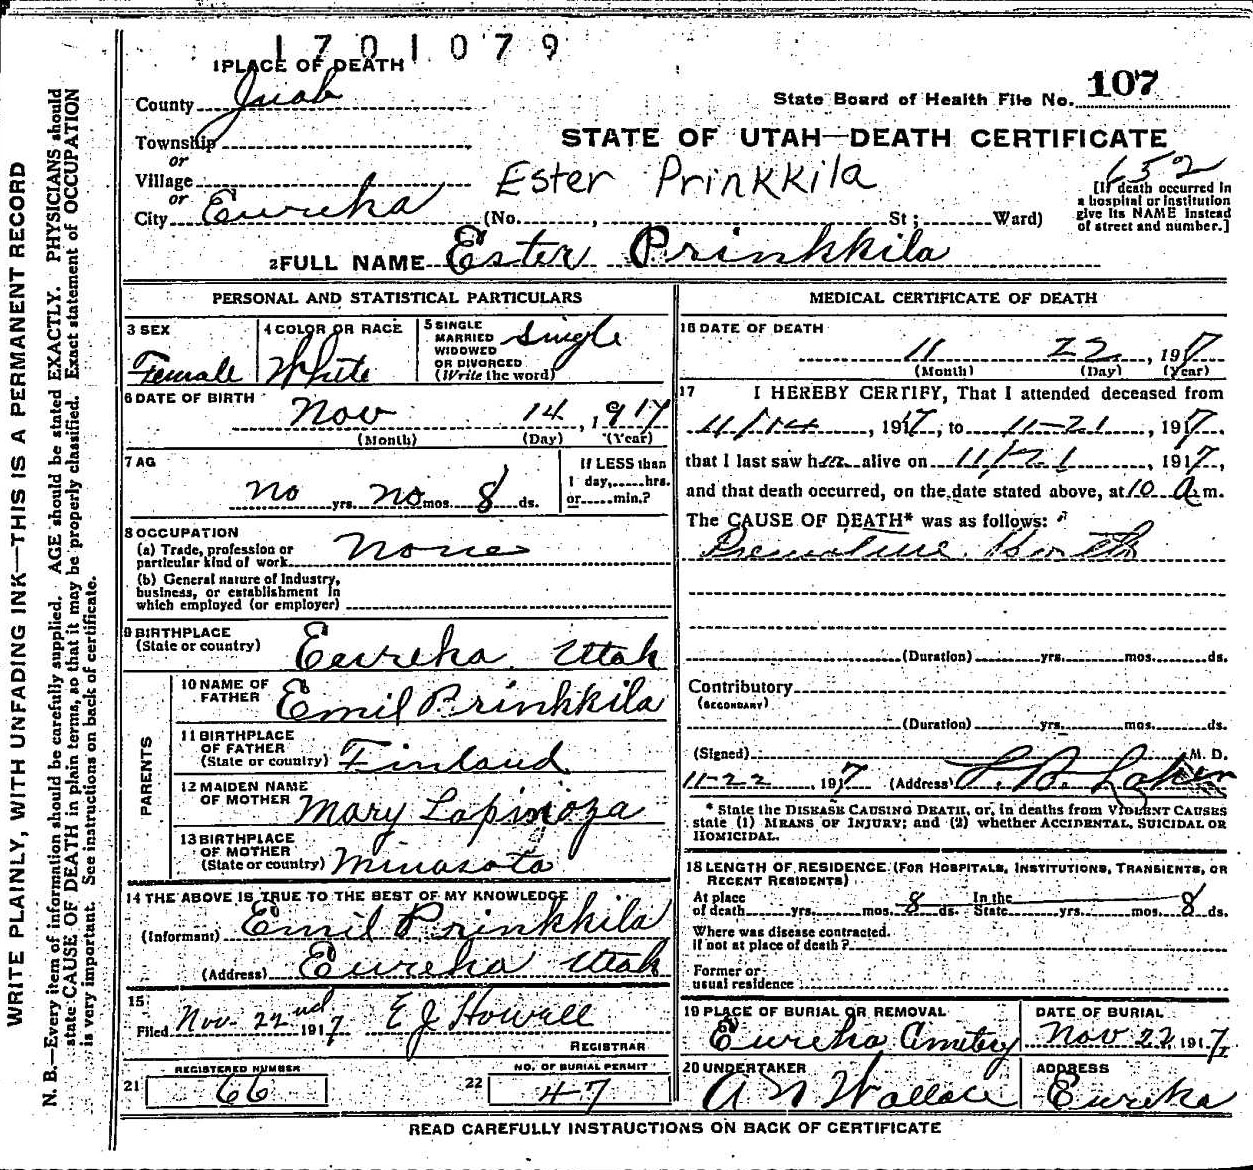 1701079
1 PLACE OF DEATH
County Juab
State Board of Health File No. 107
Township
or
STATE OF UTAH—DEATH CERTIFICATE
Village
or
Ester Prinkkila
652
City Eureka (No. , St; Ward)
[If death occurred in
a hospital or institution
give its NAME instead
of street and number.]
2 FULL NAME Ester Prinkkila
PERSONAL AND STATISTICAL PARTICULARS
3 SEX
Female
4 COLOR OR RACE
White
5 SINGLE
MARRIED
WIDOWED
OR DIVORCED
(Write the word)
Single
6 DATE OF BIRTH
Nov 14, 1917
(Month) (Day) (Year)
7 AG
no yrs. no mos. 8 ds.
If LESS than
1 day, hrs.
or min.?
8 OCCUPATION
(a) Trade, profession or
particular kind of work None
(b) General nature of Industry,
business, or establishment in
which employed (or employer)
9 BIRTHPLACE
(State or country) Eureka Utah
PARENTS
10 NAME OF
FATHER Emil Prinkkila
11 BIRTHPLACE
OF FATHER
(State or country) Finland
12 MAIDEN NAME
OF MOTHER Mary Lapinoza
13 BIRTHPLACE
OF MOTHER
(State or country) Minasota
14 THE ABOVE IS TRUE TO THE BEST OF MY KNOWLEDGE
(Informant) Emil Prinkkila
(Address) Eureka Utah
15
Filed Nov. 22nd 1917 E J Howell
REGISTRAR
21 REGISTERED NUMBER
66
22 NO. OF BURIAL PERMIT
47
MEDICAL CERTIFICATE OF DEATH
16 DATE OF DEATH
11 22, 1917
(Month) (Day) (Year)
17 I HEREBY CERTIFY, That I attended deceased from
11/14, 1917, to 11-21, 1917,
that I last saw her alive on 11/21, 1917,
and that death occurred, on the date stated above, at 10 a m.
The CAUSE OF DEATH* was as follows:
Premature Birth
(Duration) yrs. mos. ds.
Contributory
(SECONDARY)
(Duration) yrs. mos. ds.
(Signed) M. D.
11-22, 1917 (Address)
* State the DISEASE CAUSING DEATH, or, in deaths from VIOLENT CAUSES
state (1) MEANS OF INJURY; and (2) whether ACCIDENTAL, SUICIDAL OR
HOMICIDAL.
18 LENGTH OF RESIDENCE (FOR HOSPITALS, INSTITUTIONS, TRANSIENTS, OR
RECENT RESIDENTS)
At place In the
of death yrs. mos. 8 ds. State yrs. mos. 8 ds.
Where was disease contracted.
If not at place of death?
Former or
usual residence
19 PLACE OF BURIAL OR REMOVAL
Eureka Cemetery
DATE OF BURIAL
Nov 22, 1917
20 UNDERTAKER
A N Wallace
ADDRESS
Eureka
READ CAREFULLY INSTRUCTIONS ON BACK OF CERTIFICATE
WRITE PLAINLY, WITH UNFADING INK—THIS IS A PERMANENT RECORD
N. B.—Every item of information should be carefully supplied. AGE should be stated EXACTLY. PHYSICIANS should
state CAUSE OF DEATH in plain terms, so that it may be properly classified. Exact statement of OCCUPATION
is very important. See instructions on back of certificate.